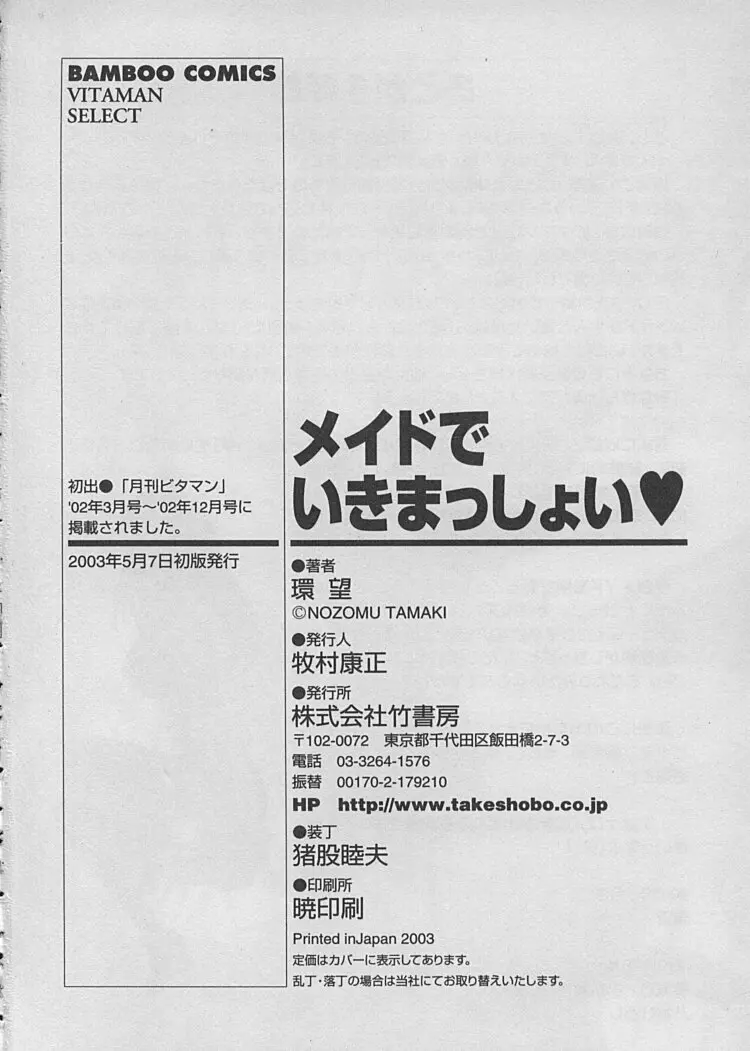 BAMBOO COMICS
VITAMAN
SELECT
メイドで
いきまっしょい♥
初出●「月刊ビタマン」
'02年3月号～'02年12月号に
掲載されました。
2003年5月7日初版発行
●著者
環 望
©NOZOMU TAMAKI
●発行人
牧村康正
●発行所
株式会社竹書房
〒102-0072 東京都千代田区飯田橋2-7-3
電話 03-3264-1576
振替 00170-2-179210
HP http://www.takeshobo.co.jp
●装丁
猪股睦夫
●印刷所
暁印刷
Printed inJapan 2003
定価はカバーに表示してあります。
乱丁・落丁の場合は当社にてお取り替えいたします。